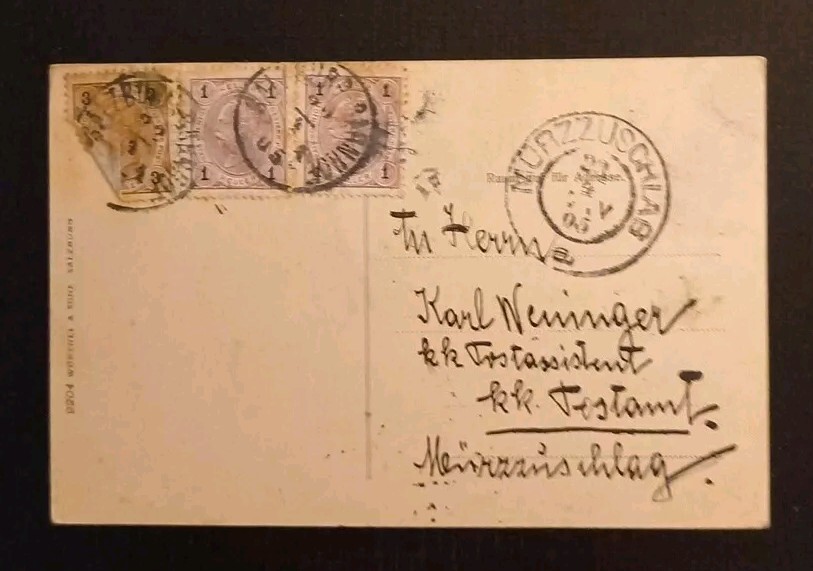 3
3
1 1
1 1
1 1
1 1
MÜRZZUSCHLAG
a
für Adresse.
An Herrn
Karl Weninger
kk Postassistent
kk. Postamt.
Mürzzuschlag.
9204 WÜRTHLE & SOHN SALZBURG